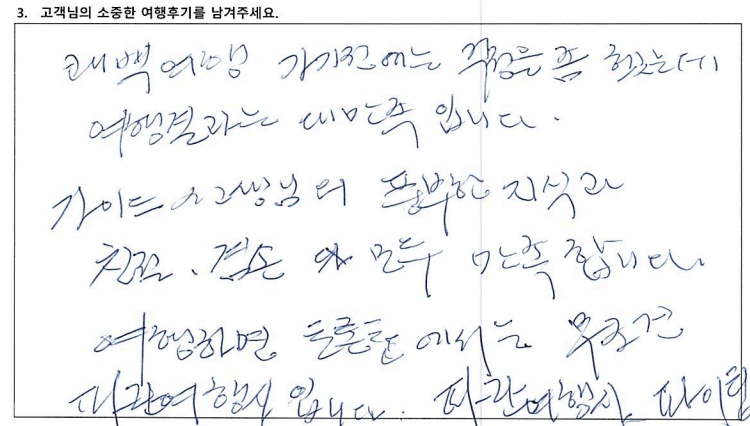 3. 고객님의 소중한 여행후기를 남겨주세요.
태백여행 가기전에는 걱정을 좀 했는데
여행결과는 대만족 입니다.
가이드 선생님의 풍부한 지식과
친절, 겸손 모두 만족 합니다.
여행하면 에서는 무조건
파란여행사 입니다. 파란여행사 파이팅